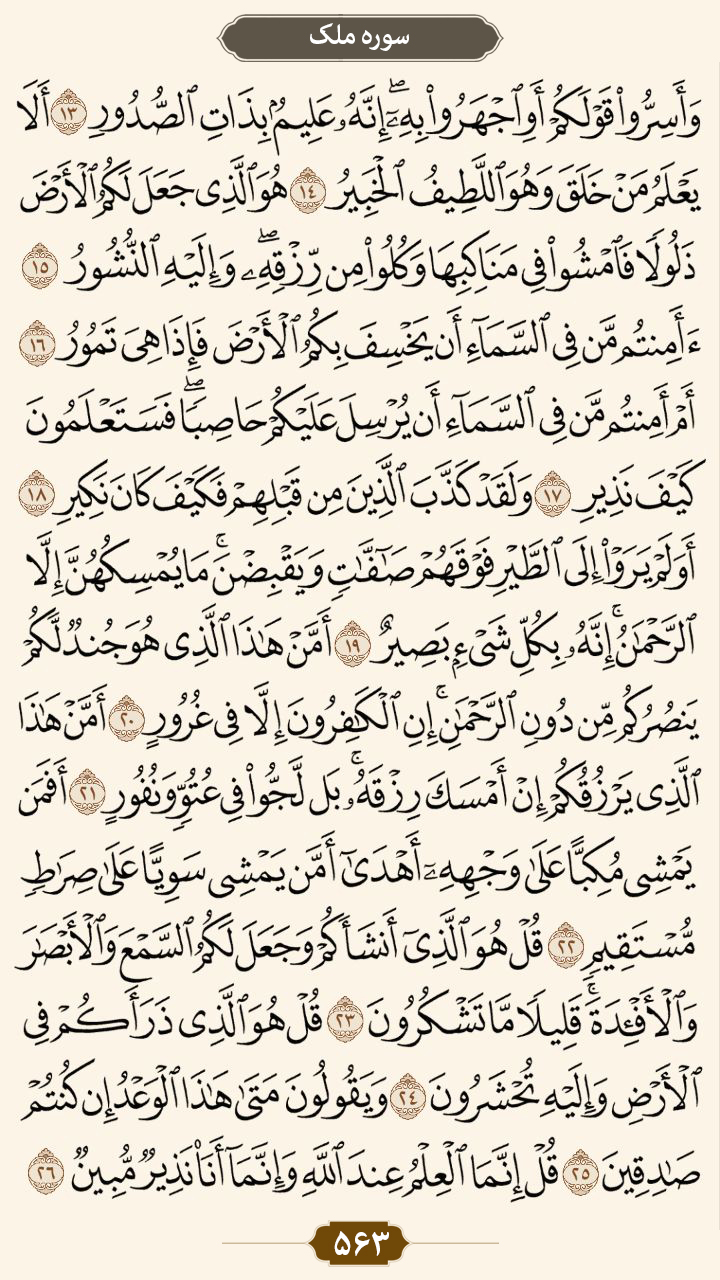 سوره ملک
وَأَسِرُّوا۟ قَوۡلَكُمۡ أَوِ ٱجۡهَرُوا۟ بِهِۦٓۖ إِنَّهُۥ عَلِيمُۢ بِذَاتِ ٱلصُّدُورِ ١٣ أَلَا
يَعۡلَمُ مَنۡ خَلَقَ وَهُوَ ٱللَّطِيفُ ٱلۡخَبِيرُ ١٤ هُوَ ٱلَّذِى جَعَلَ لَكُمُ ٱلۡأَرۡضَ
ذَلُولٗا فَٱمۡشُوا۟ فِى مَنَاكِبِهَا وَكُلُوا۟ مِن رِّزۡقِهِۦۖ وَإِلَيۡهِ ٱلنُّشُورُ ١٥
ءَأَمِنتُم مَّن فِى ٱلسَّمَآءِ أَن يَخۡسِفَ بِكُمُ ٱلۡأَرۡضَ فَإِذَا هِىَ تَمُورُ ١٦
أَمۡ أَمِنتُم مَّن فِى ٱلسَّمَآءِ أَن يُرۡسِلَ عَلَيۡكُمۡ حَاصِبٗاۖ فَسَتَعۡلَمُونَ
كَيۡفَ نَذِيرِ ١٧ وَلَقَدۡ كَذَّبَ ٱلَّذِينَ مِن قَبۡلِهِمۡ فَكَيۡفَ كَانَ نَكِيرِ ١٨
أَوَلَمۡ يَرَوۡا۟ إِلَى ٱلطَّيۡرِ فَوۡقَهُمۡ صَٰٓفَّٰتٖ وَيَقۡبِضۡنَۚ مَا يُمۡسِكُهُنَّ إِلَّا
ٱلرَّحۡمَٰنُۚ إِنَّهُۥ بِكُلِّ شَىۡءِۭ بَصِيرٌ ١٩ أَمَّنۡ هَٰذَا ٱلَّذِى هُوَ جُندٞ لَّكُمۡ
يَنصُرُكُم مِّن دُونِ ٱلرَّحۡمَٰنِۚ إِنِ ٱلۡكَٰفِرُونَ إِلَّا فِى غُرُورٍ ٢٠ أَمَّنۡ هَٰذَا
ٱلَّذِى يَرۡزُقُكُمۡ إِنۡ أَمۡسَكَ رِزۡقَهُۥۚ بَل لَّجُّوا۟ فِى عُتُوّٖ وَنُفُورٍ ٢١ أَفَمَن
يَمۡشِى مُكِبًّا عَلَىٰ وَجۡهِهِۦٓ أَهۡدَىٰٓ أَمَّن يَمۡشِى سَوِيًّا عَلَىٰ صِرَٰطٖ
مُّسۡتَقِيمٖ ٢٢ قُلۡ هُوَ ٱلَّذِىٓ أَنشَأَكُمۡ وَجَعَلَ لَكُمُ ٱلسَّمۡعَ وَٱلۡأَبۡصَٰرَ
وَٱلۡأَفۡـِٔدَةَۚ قَلِيلٗا مَّا تَشۡكُرُونَ ٢٣ قُلۡ هُوَ ٱلَّذِى ذَرَأَكُمۡ فِى
ٱلۡأَرۡضِ وَإِلَيۡهِ تُحۡشَرُونَ ٢٤ وَيَقُولُونَ مَتَىٰ هَٰذَا ٱلۡوَعۡدُ إِن كُنتُمۡ
صَٰدِقِينَ ٢٥ قُلۡ إِنَّمَا ٱلۡعِلۡمُ عِندَ ٱللَّهِ وَإِنَّمَآ أَنَا۠ نَذِيرٞ مُّبِينٞ ٢٦
۵۶۳